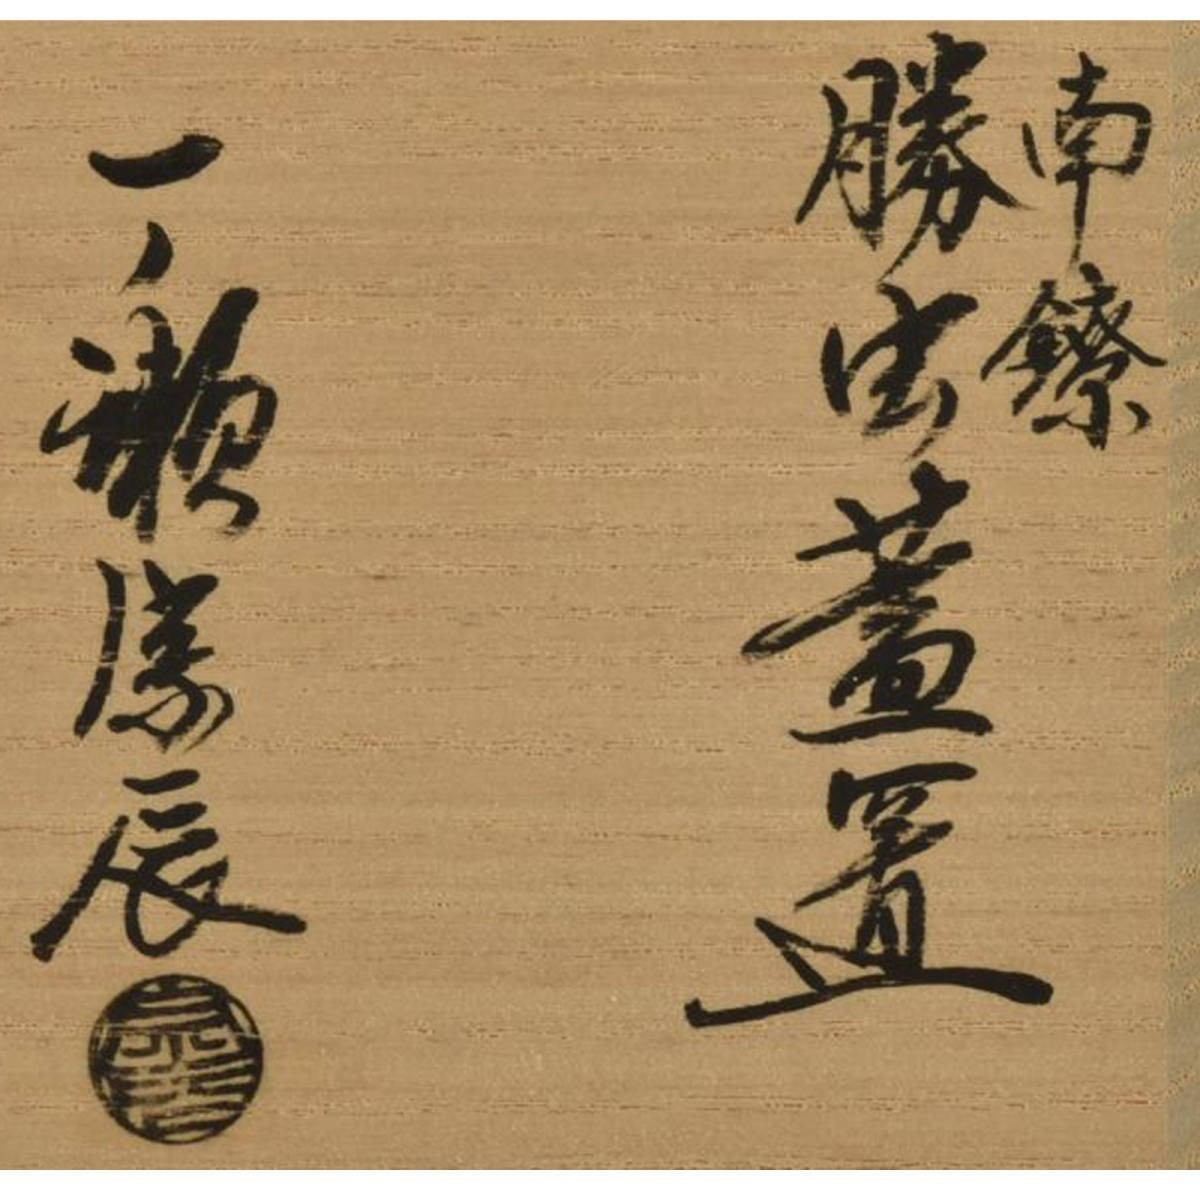 南鐐
勝虫蓋置
一ノ瀬勝辰